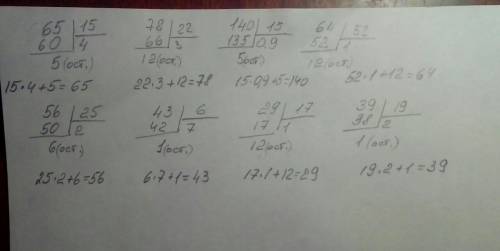 65 15 78 22 140 15 64 52
60 4 66 3 135 0,9 52 1
5(ост.) 12(ост.) 5ост.) 12(ост.)
15·4+5=65 22·3+12=78 15·0,9+5=140 52·1+12=64
56 25 43 6 29 17 39 19
50 2 42 7 17 1 38 2
6(ост.) 1(ост.) 12(ост.) 1(ост.)
25·2+6=56 6·7+1=43 17·1+12=29 19·2+1=39